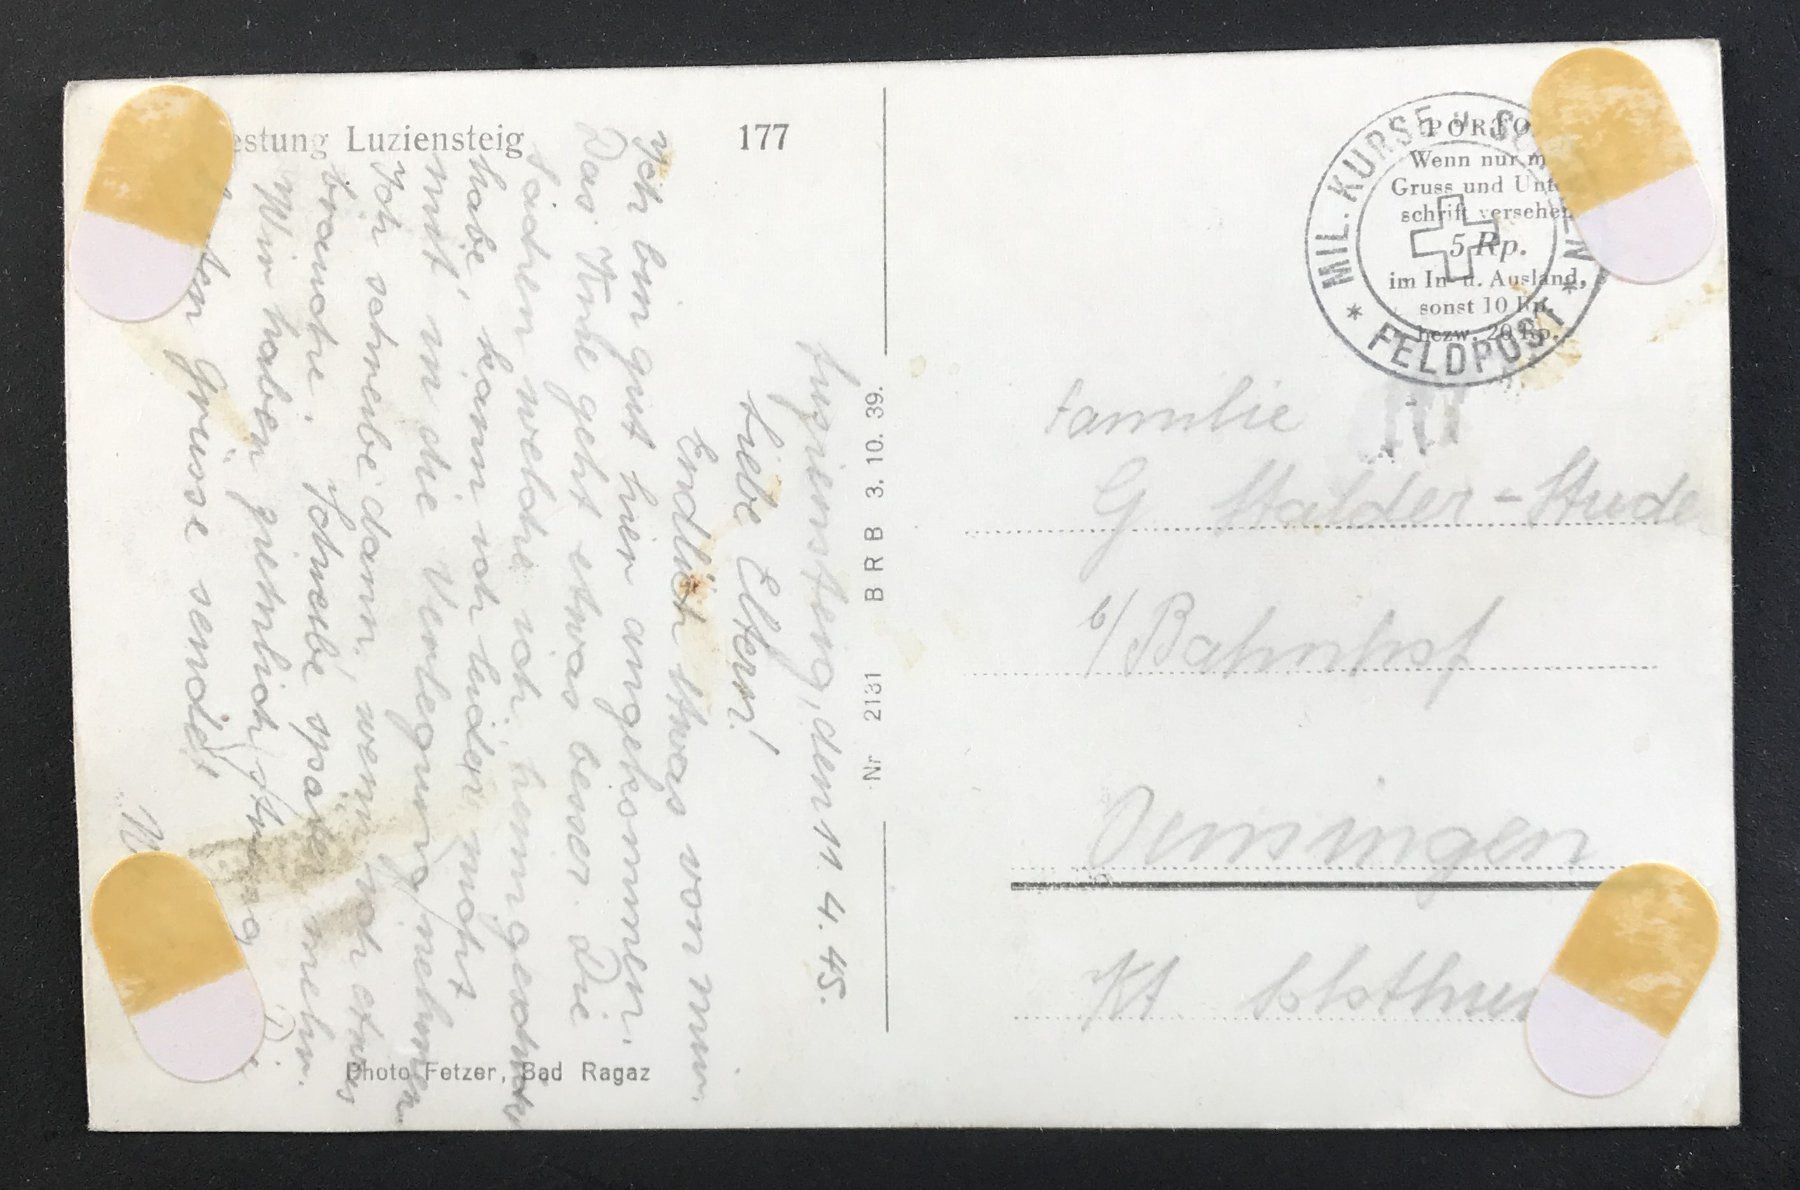 estung Luziensteig
177
Luziensteig, den 11. 4. 45.
Liebe Eltern!
Endlich etwas von mir.
Ich bin gut hier angekommen.
Das Knie geht etwas besser. Die
Sachen welche ich
habe, kann ich leider nicht
mit in die Verlegung nehmen.
Ich schreibe dann, wenn ich etwas
brauche. Schreibe später mehr.
Wir haben ziemlich streng
Grüsse sendet
Photo Fetzer, Bad Ragaz
Nr 2131 BRB 3. 10. 39.
MIL. KURSE u. SCHULEN
* FELDPOST *
PORTO
Wenn nur m
Gruss und Unter
schrift versehen
5 Rp.
im In- u. Ausland,
sonst 10 Rp.
bezw. 20 Rp.
Familie
G Stalder-Stude
b/Bahnhof
Oensingen
Kt Solothur